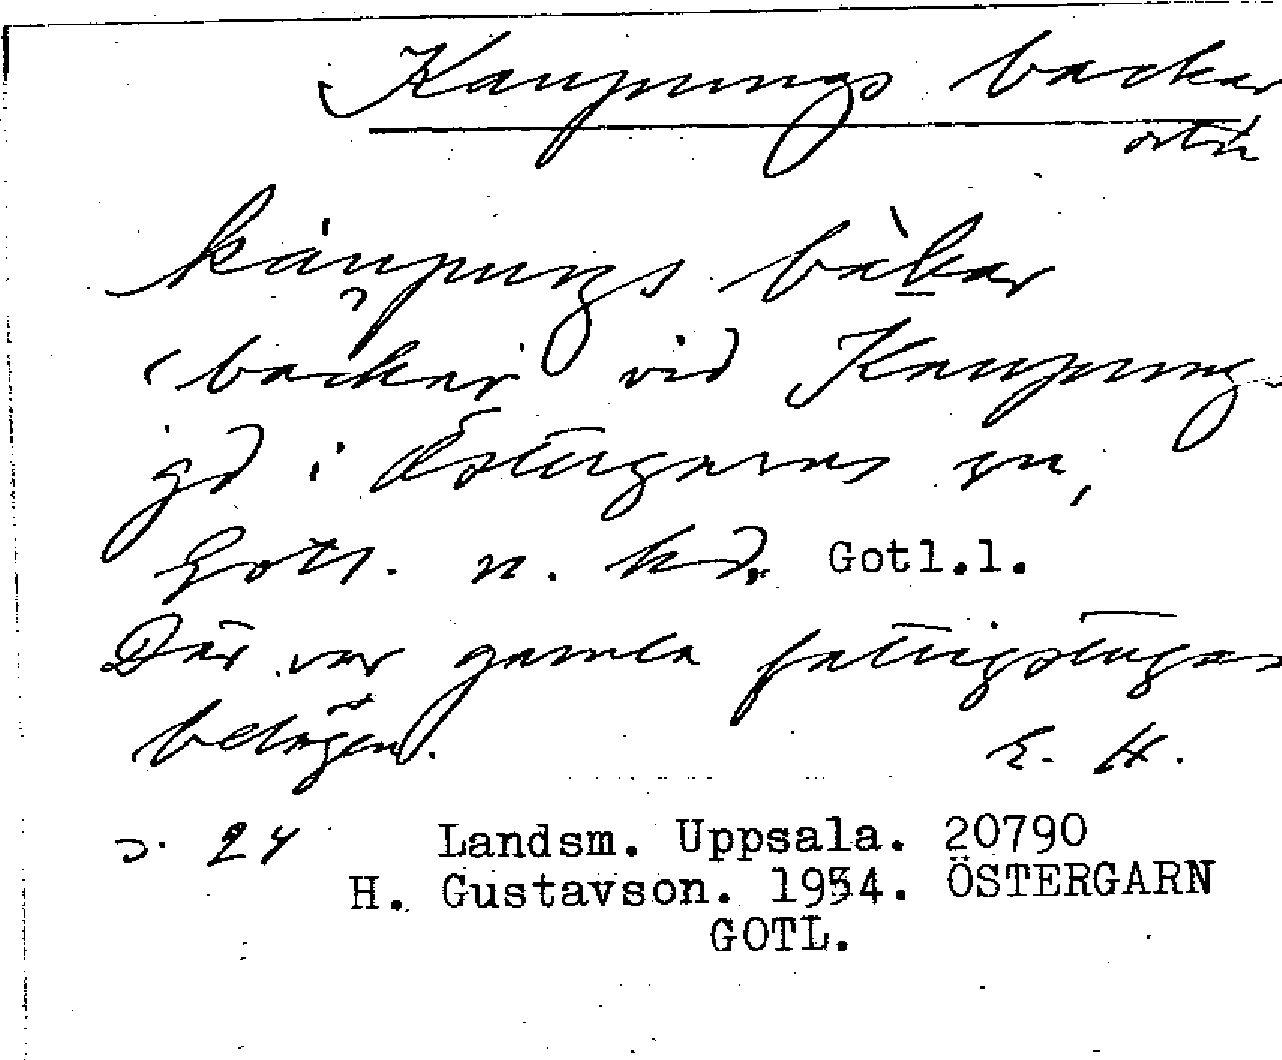 Kaupungs backar
ortn
káupungs bàkar
backar vid Kaupungs
gd i Östergarns sn,
Gotl. n. hd. Gotl.l.
Där var gamla fattigstugan
belägen. E. H.
s. 24 Landsm. Uppsala. 20790
H. Gustavson. 1954. ÖSTERGARN
GOTL.